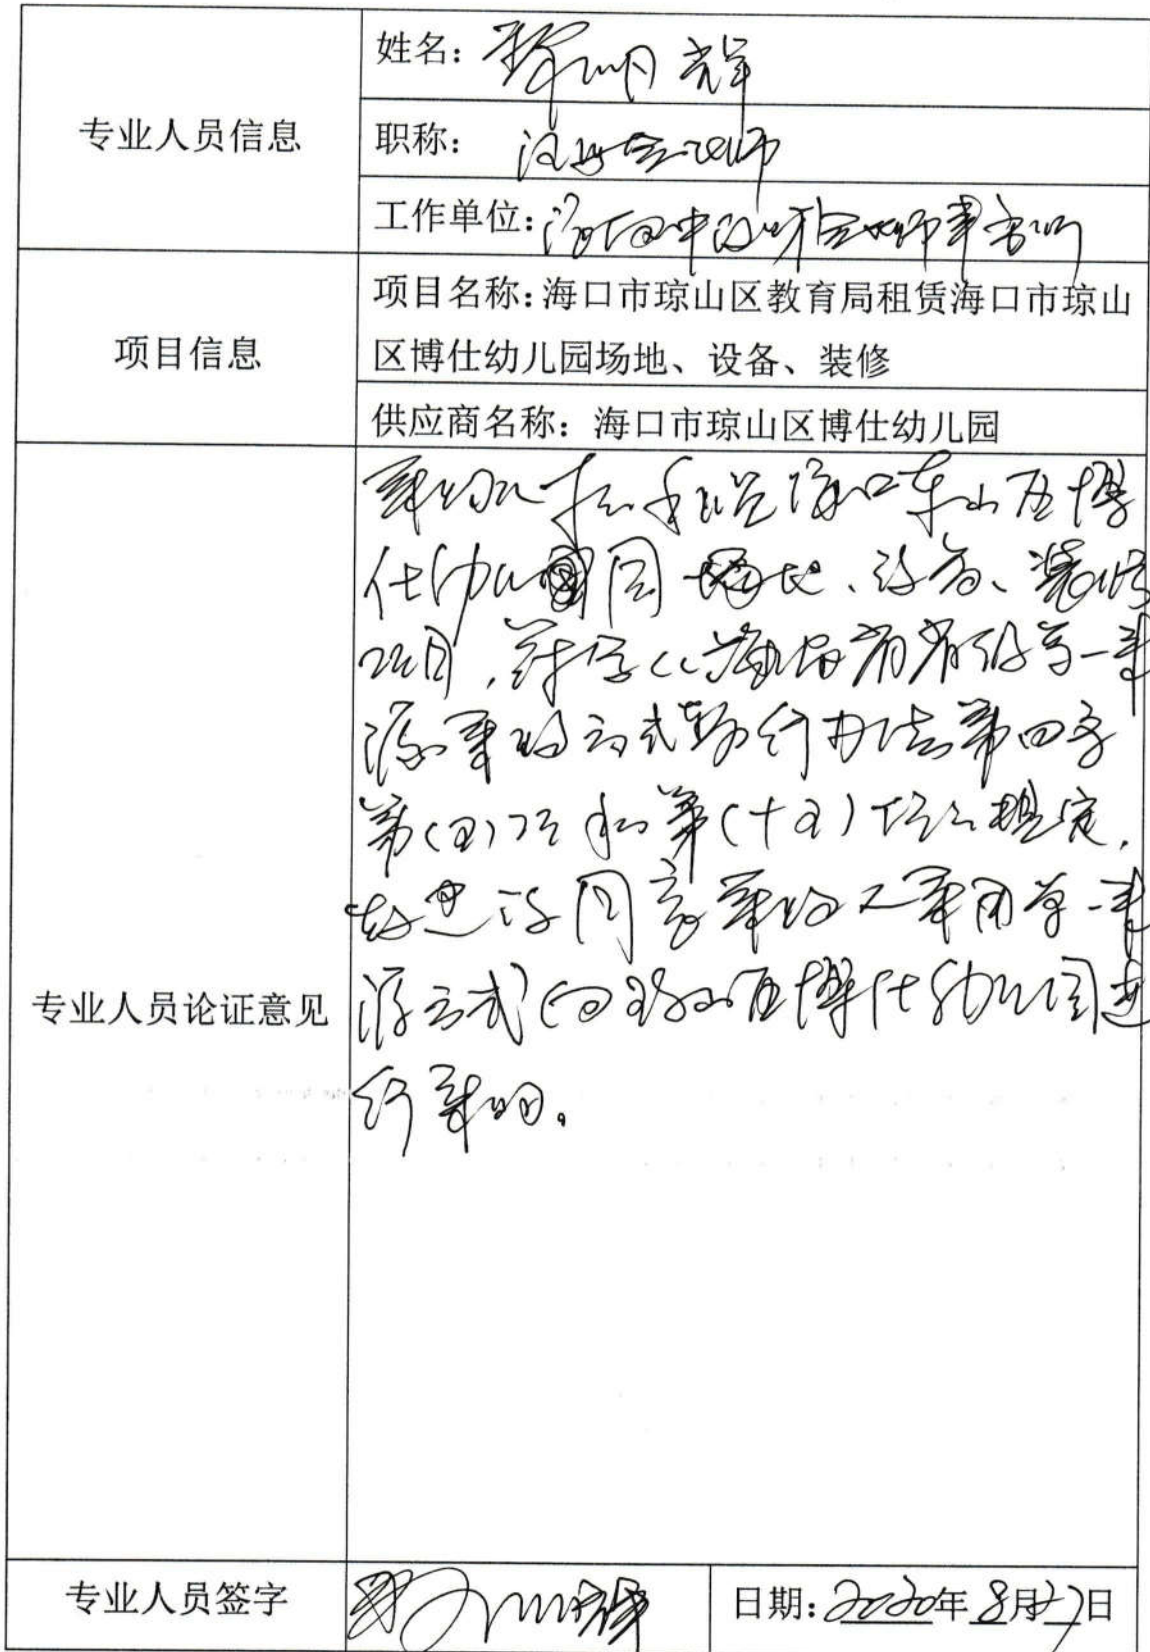 专业人员信息
姓名：明辉
职称：注册会计师
工作单位：海口中会计师事务所
项目信息
项目名称：海口市琼山区教育局租赁海口市琼山
区博仕幼儿园场地、设备、装修
供应商名称：海口市琼山区博仕幼儿园
专业人员论证意见
采购人租海口山区博
仕幼儿园场地、设备、装修
项目，符合《海南省省级单一来
源采购方式暂行办法第四条
第(五)项和第(十五)项之规定，
建议同意采购人采用单一来
源方式向琼山区博仕幼儿园进
行采购。
专业人员签字
日期：2020年8月27日